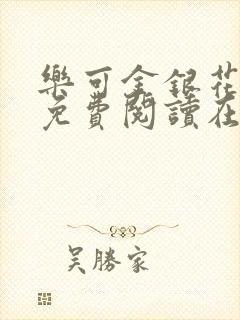 樂可金銀花
免費閱讀在
吴勝家